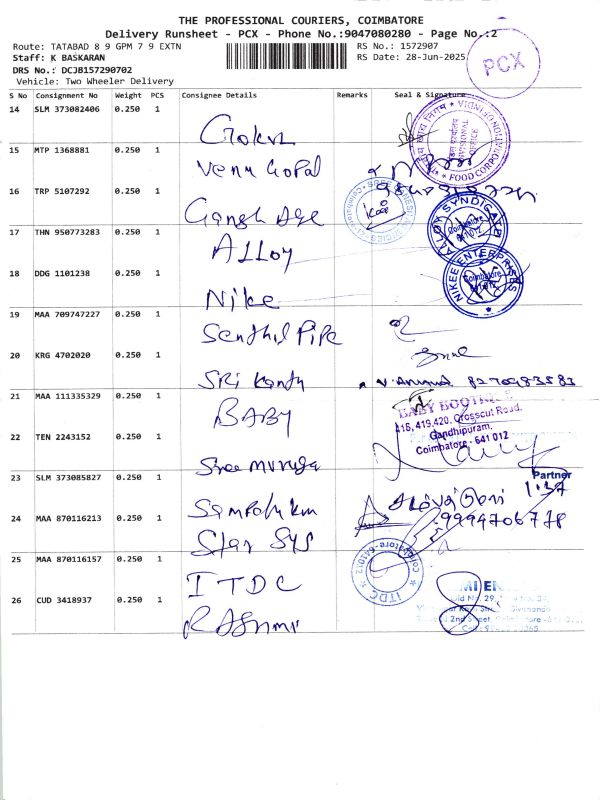 THE PROFESSIONAL COURIERS, COIMBATORE
Delivery Runsheet - PCX - Phone No.:9047080280 - Page No.:2
Route: TATABAD 8 9 GPM 7 9 EXTN
RS No.: 1572907
Staff: K BASKARAN
RS Date: 28-Jun-2025
DRS No.: DCJB157290702
Vehicle: Two Wheeler Delivery
PCX
S No Consignment No Weight PCS Consignee Details Remarks Seal & Signature
14 SLM 373082406 0.250 1
Gokul
15 MTP 1368881 0.250 1
Venu Gopal
16 TRP 5107292 0.250 1
Ganesh Age
17 THN 950773283 0.250 1
ALLOY
ALLOY SYNDICATE
18 DDG 1101238 0.250 1
Nike
NIKEE ENTERPRISES
19 MAA 709747227 0.250 1
Senthil Pipe
20 KRG 4702020 0.250 1
SRi Kanth
21 MAA 111335329 0.250 1
BABY
BABY BOOTIQUE
416,419,420, Crosscut Road,
Gandhipuram,
Coimbatore - 641 012
22 TEN 2243152 0.250 1
Sree muruga
Partner
23 SLM 373085827 0.250 1
24 MAA 870116213 0.250 1
Star Sys
25 MAA 870116157 0.250 1
ITDC
ITDC Coimbatore-641012
26 CUD 3418937 0.250 1
RASHMI